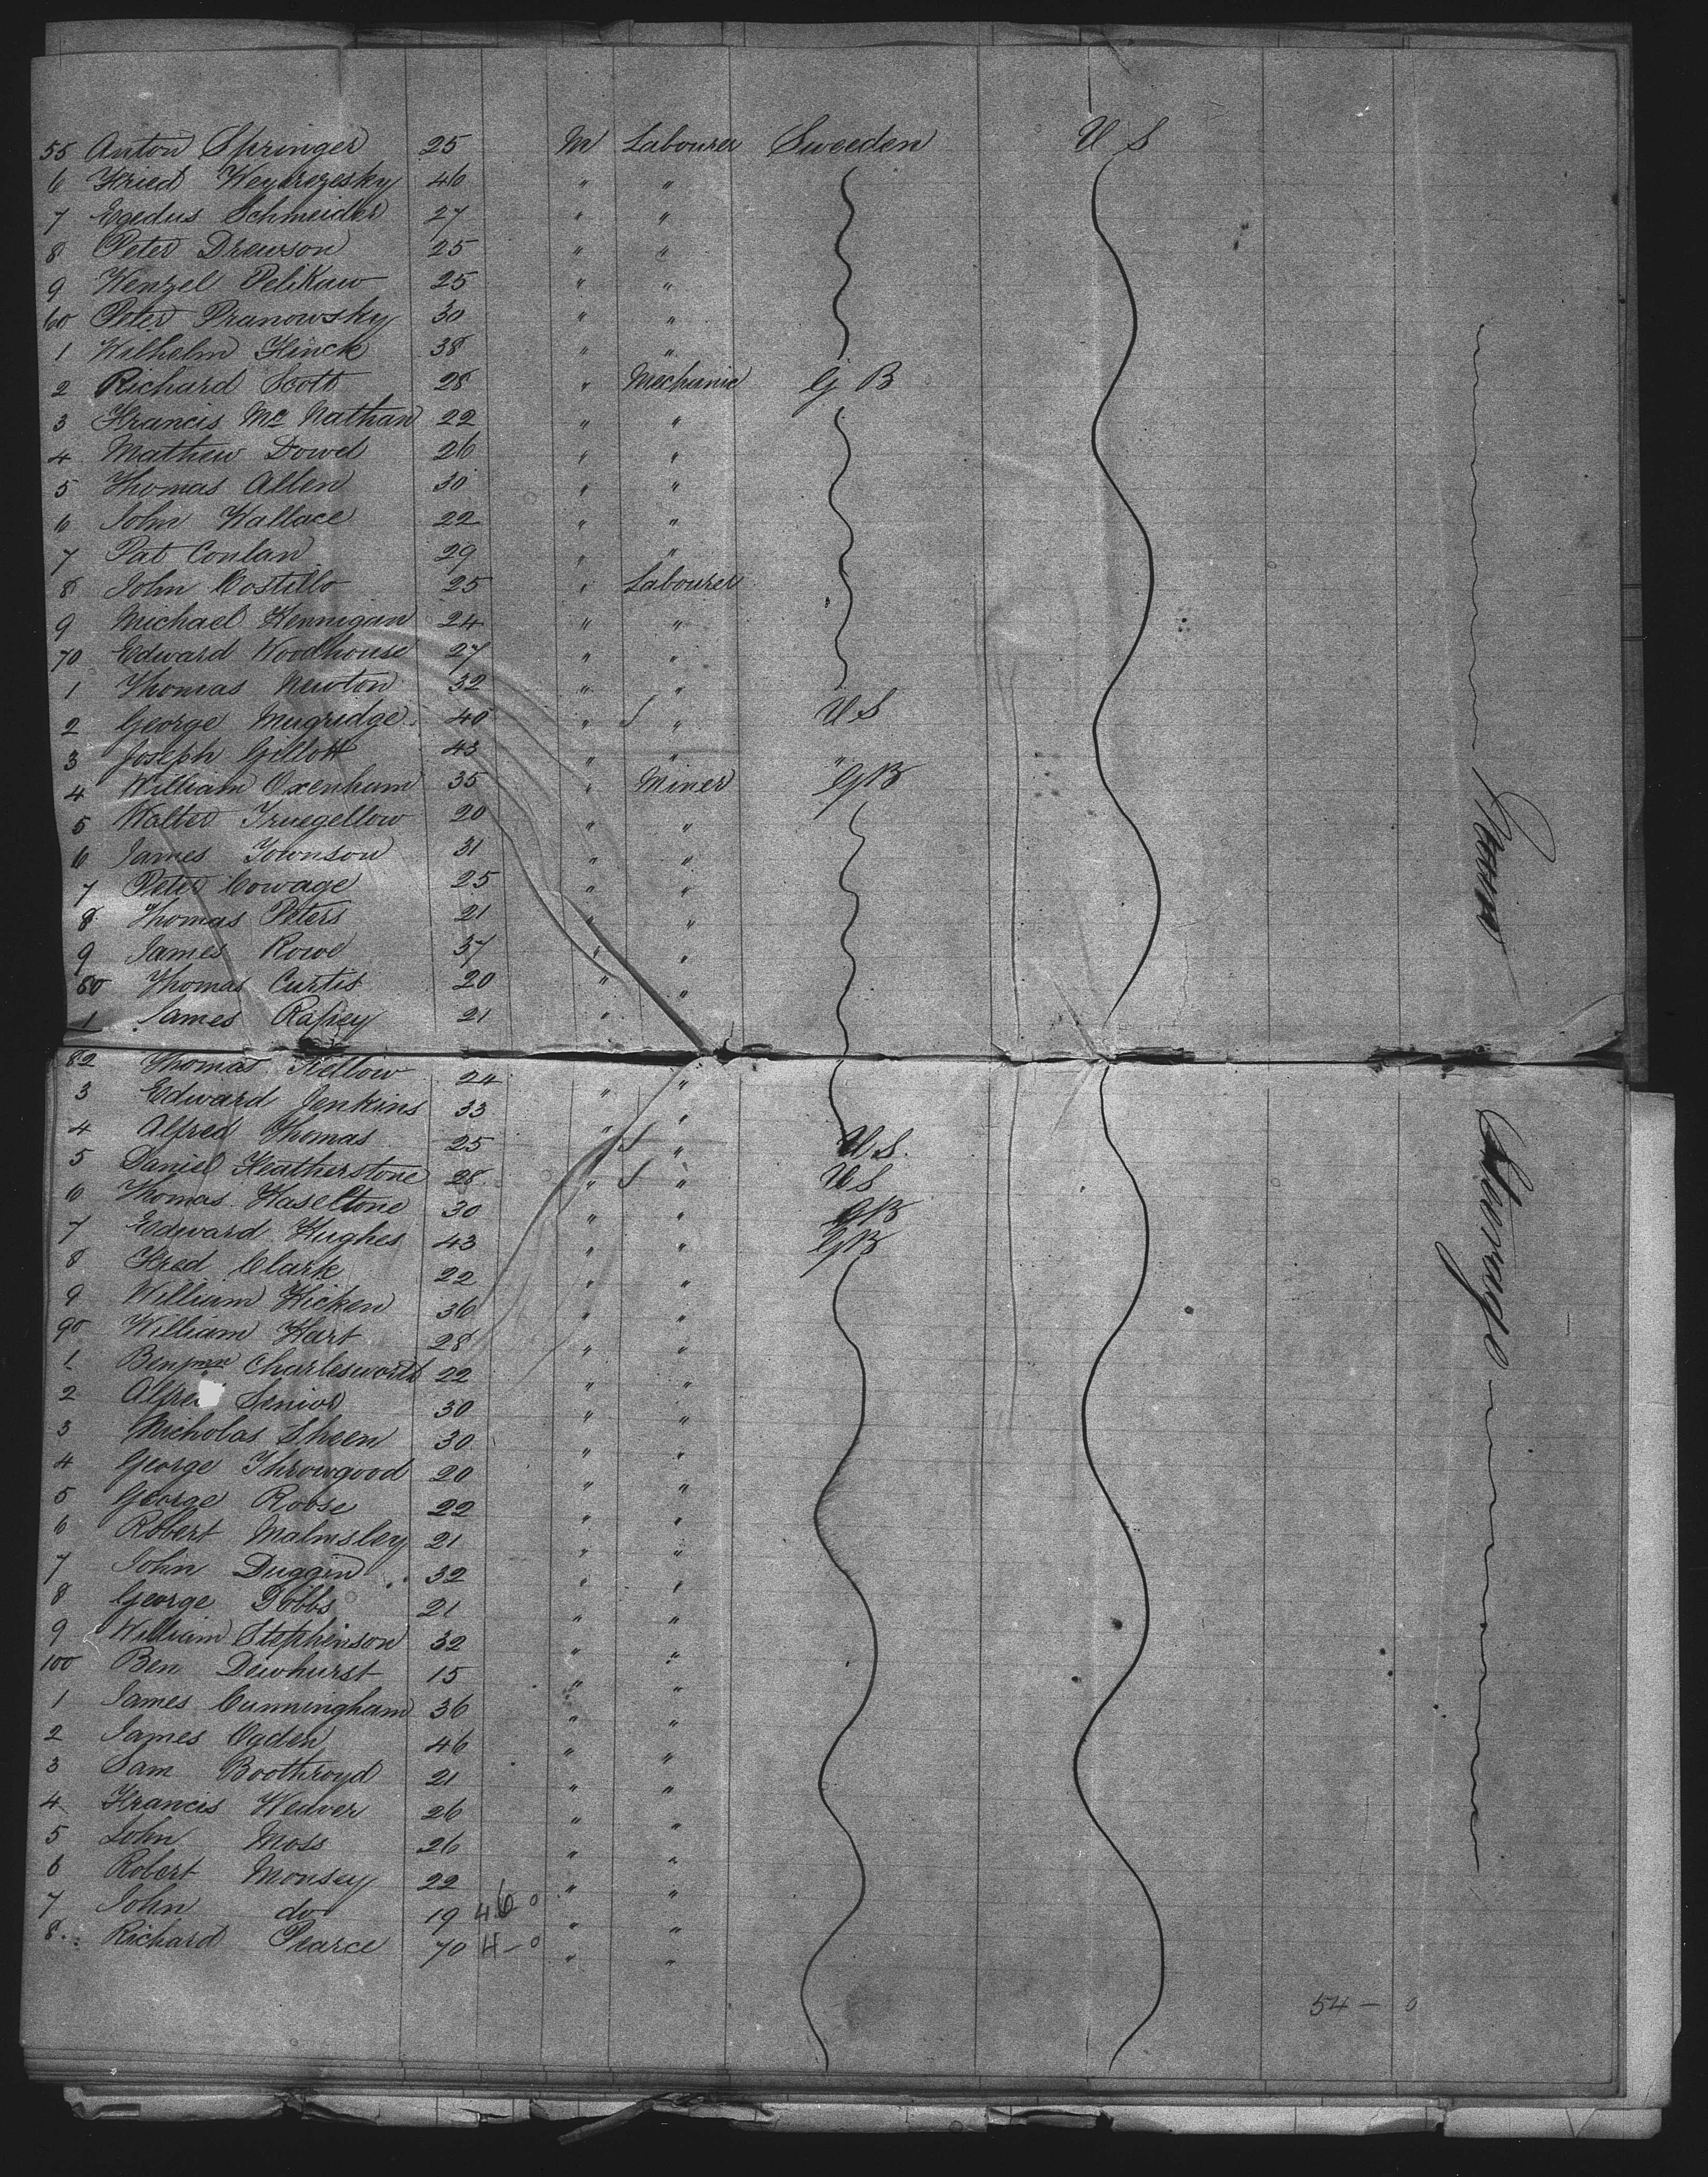 55 Anton Springer 25 M Labourer Sweeden U S
6 Fried 46 " "
7 Egedus Schmeider 27 " "
8 Peter Drewson 25 " "
9 Wenzel Pelikaw 25 " "
60 Peter Pranowsky 30 " "
1 Wilhelm Hinck 38 " "
2 Richard Scott 28 " Mechanic G B
3 Francis Mc Nathan 22 " "
4 Mathew Dowd 26 " "
5 Thomas Allen 30 " "
6 John Wallace 22 " "
7 Pat Conlan 29 " "
8 John Costillo 25 " Labourer
9 Michael Hennigan 24 " "
70 Edward Woodhouse 27 " "
1 Thomas Newton 32 " "
2 George Mugridge 40 " " U S
3 Joseph Gillott 43 " " "
4 William Oxenham 35 " Miner GB
5 Walter Truegellow 20 " "
6 James Townson 31 " "
7 Peter Cowage 25 " "
8 Thomas Peters 21 " "
9 James Rowe 37 " "
80 Thomas Curtis 20 " "
1 James Rapey 21 "
82 Thomas Kellow 24 " "
3 Edward Jenkins 33 " "
4 Alfred Thomas 25 " " U.S.
5 Daniel Featherstone 28 " " US
6 Thomas Haseltone 30 " " GB
7 Edward Hughes 43 " " GB
8 Fred Clark 22 " "
9 William Hicken 36 " "
90 William Hart 28 " "
1 Benjmn Charlesworth 22 " "
2 Alfre Senior 30 " "
3 Nicholas Sheen 30 " "
4 George Throwgood 20 " "
5 George Roose 22 " "
6 Robert Malmsley 21 " "
7 John Duggin 32 " "
8 George Dobbs 21 " "
9 William Stephinson 32 " "
100 Ben Dewhurst 15 " "
1 James Cunningham 36 " "
2 James Ogden 46 " "
3 Sam Boothroyd 21 " "
4 Francis Weaver 26 " "
5 John Moss 26 " "
6 Robert Monsey 22 " "
7 John do 19 46 0 " "
8 Richard Pearce 70 4 - 0 " "
54 - 0
Steerage